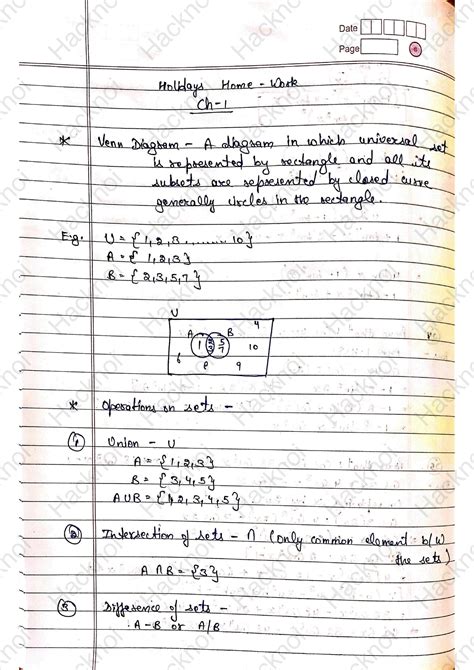 Date
Page
Holidays Home - Work
Ch-1
* Venn Diagram - A diagram in which universal set
is represented by rectangle and all its
subsets are represented by closed curve
generally circles in the rectangle.
E.g. U = {1, 2, 3 ......... 10}
A = {1, 2, 3}
B = {2, 3, 5, 7}
U
A B 4
1 2 5 10
3 7
6 8 9
* Operations on sets -
① Union - U
A = {1, 2, 3}
B = {3, 4, 5}
A∪B = {1, 2, 3, 4, 5}
② Intersection of sets - ∩ (only common element b/w
the sets)
A ∩ B = {3}
③ Difference of sets -
A-B or A/B
Hacknoi